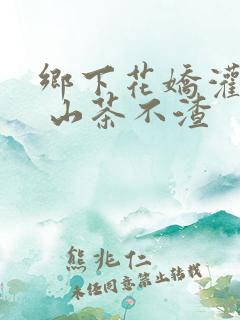 鄉下花嬌灌
山茶不渣
熊兆仁
未经同意禁止转载